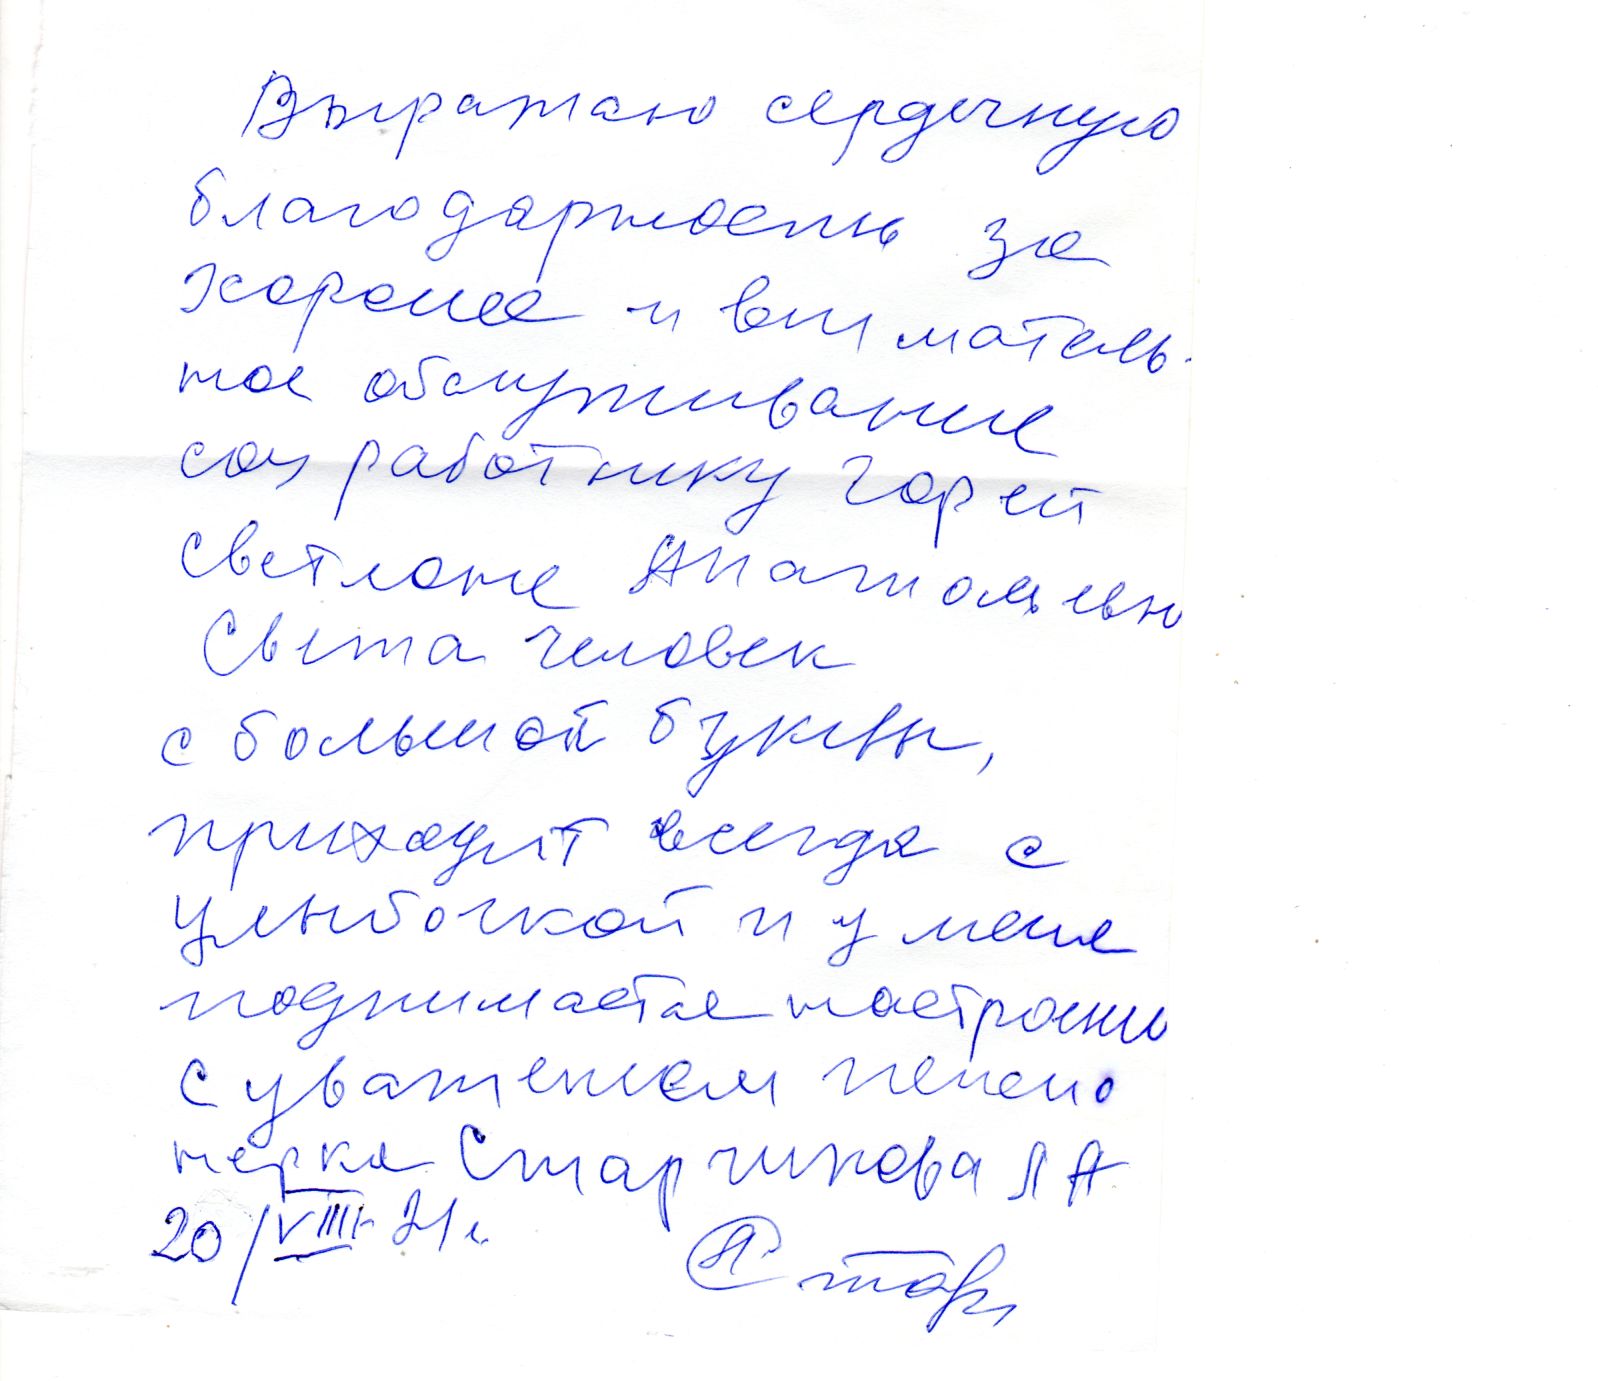 Выражаю сердечную
благодарность за
хорошее и вниматель-
ное обслуживание
соц работнику Горей
Светлане Анатольевне
Света человек
с большой буквы,
приходит всегда с
улыбочкой и у меня
поднимается настроение
с уважением пенсио
нерка Старчикова Л А
20/VIII-21г.